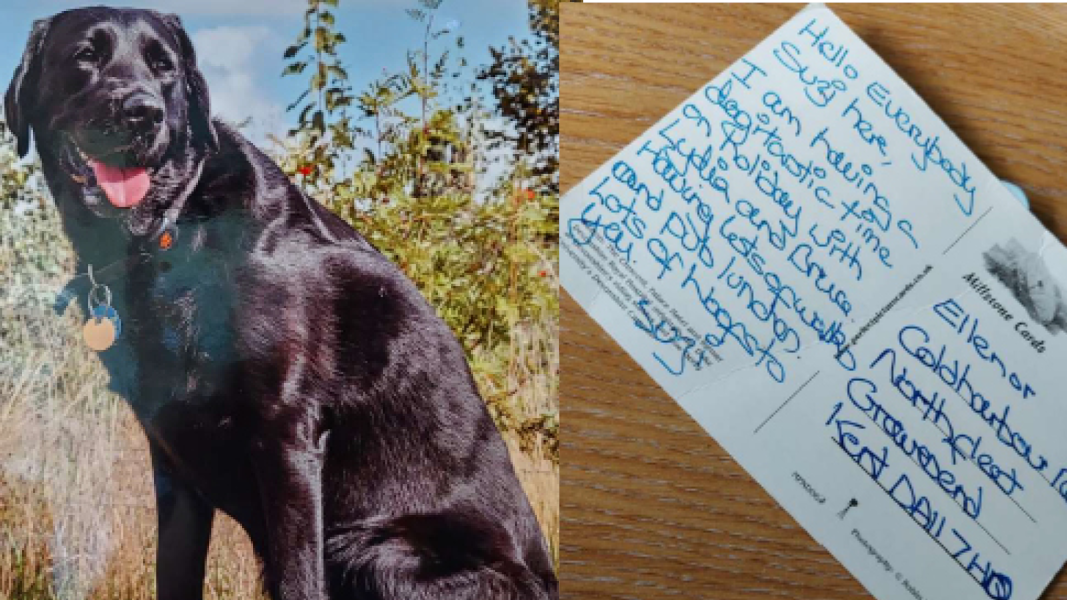 Hello Everybody
Suzy here,
I am having a
dogitastic time
on Holiday with
Lydia and Bruce
Having lots of walks
and pub
Lots of
you.
Suzy
Millstone Cards
Ellenor
Coldharbour
Northfleet
Gravesend
Kent DA11 7HQ
Photography: ©